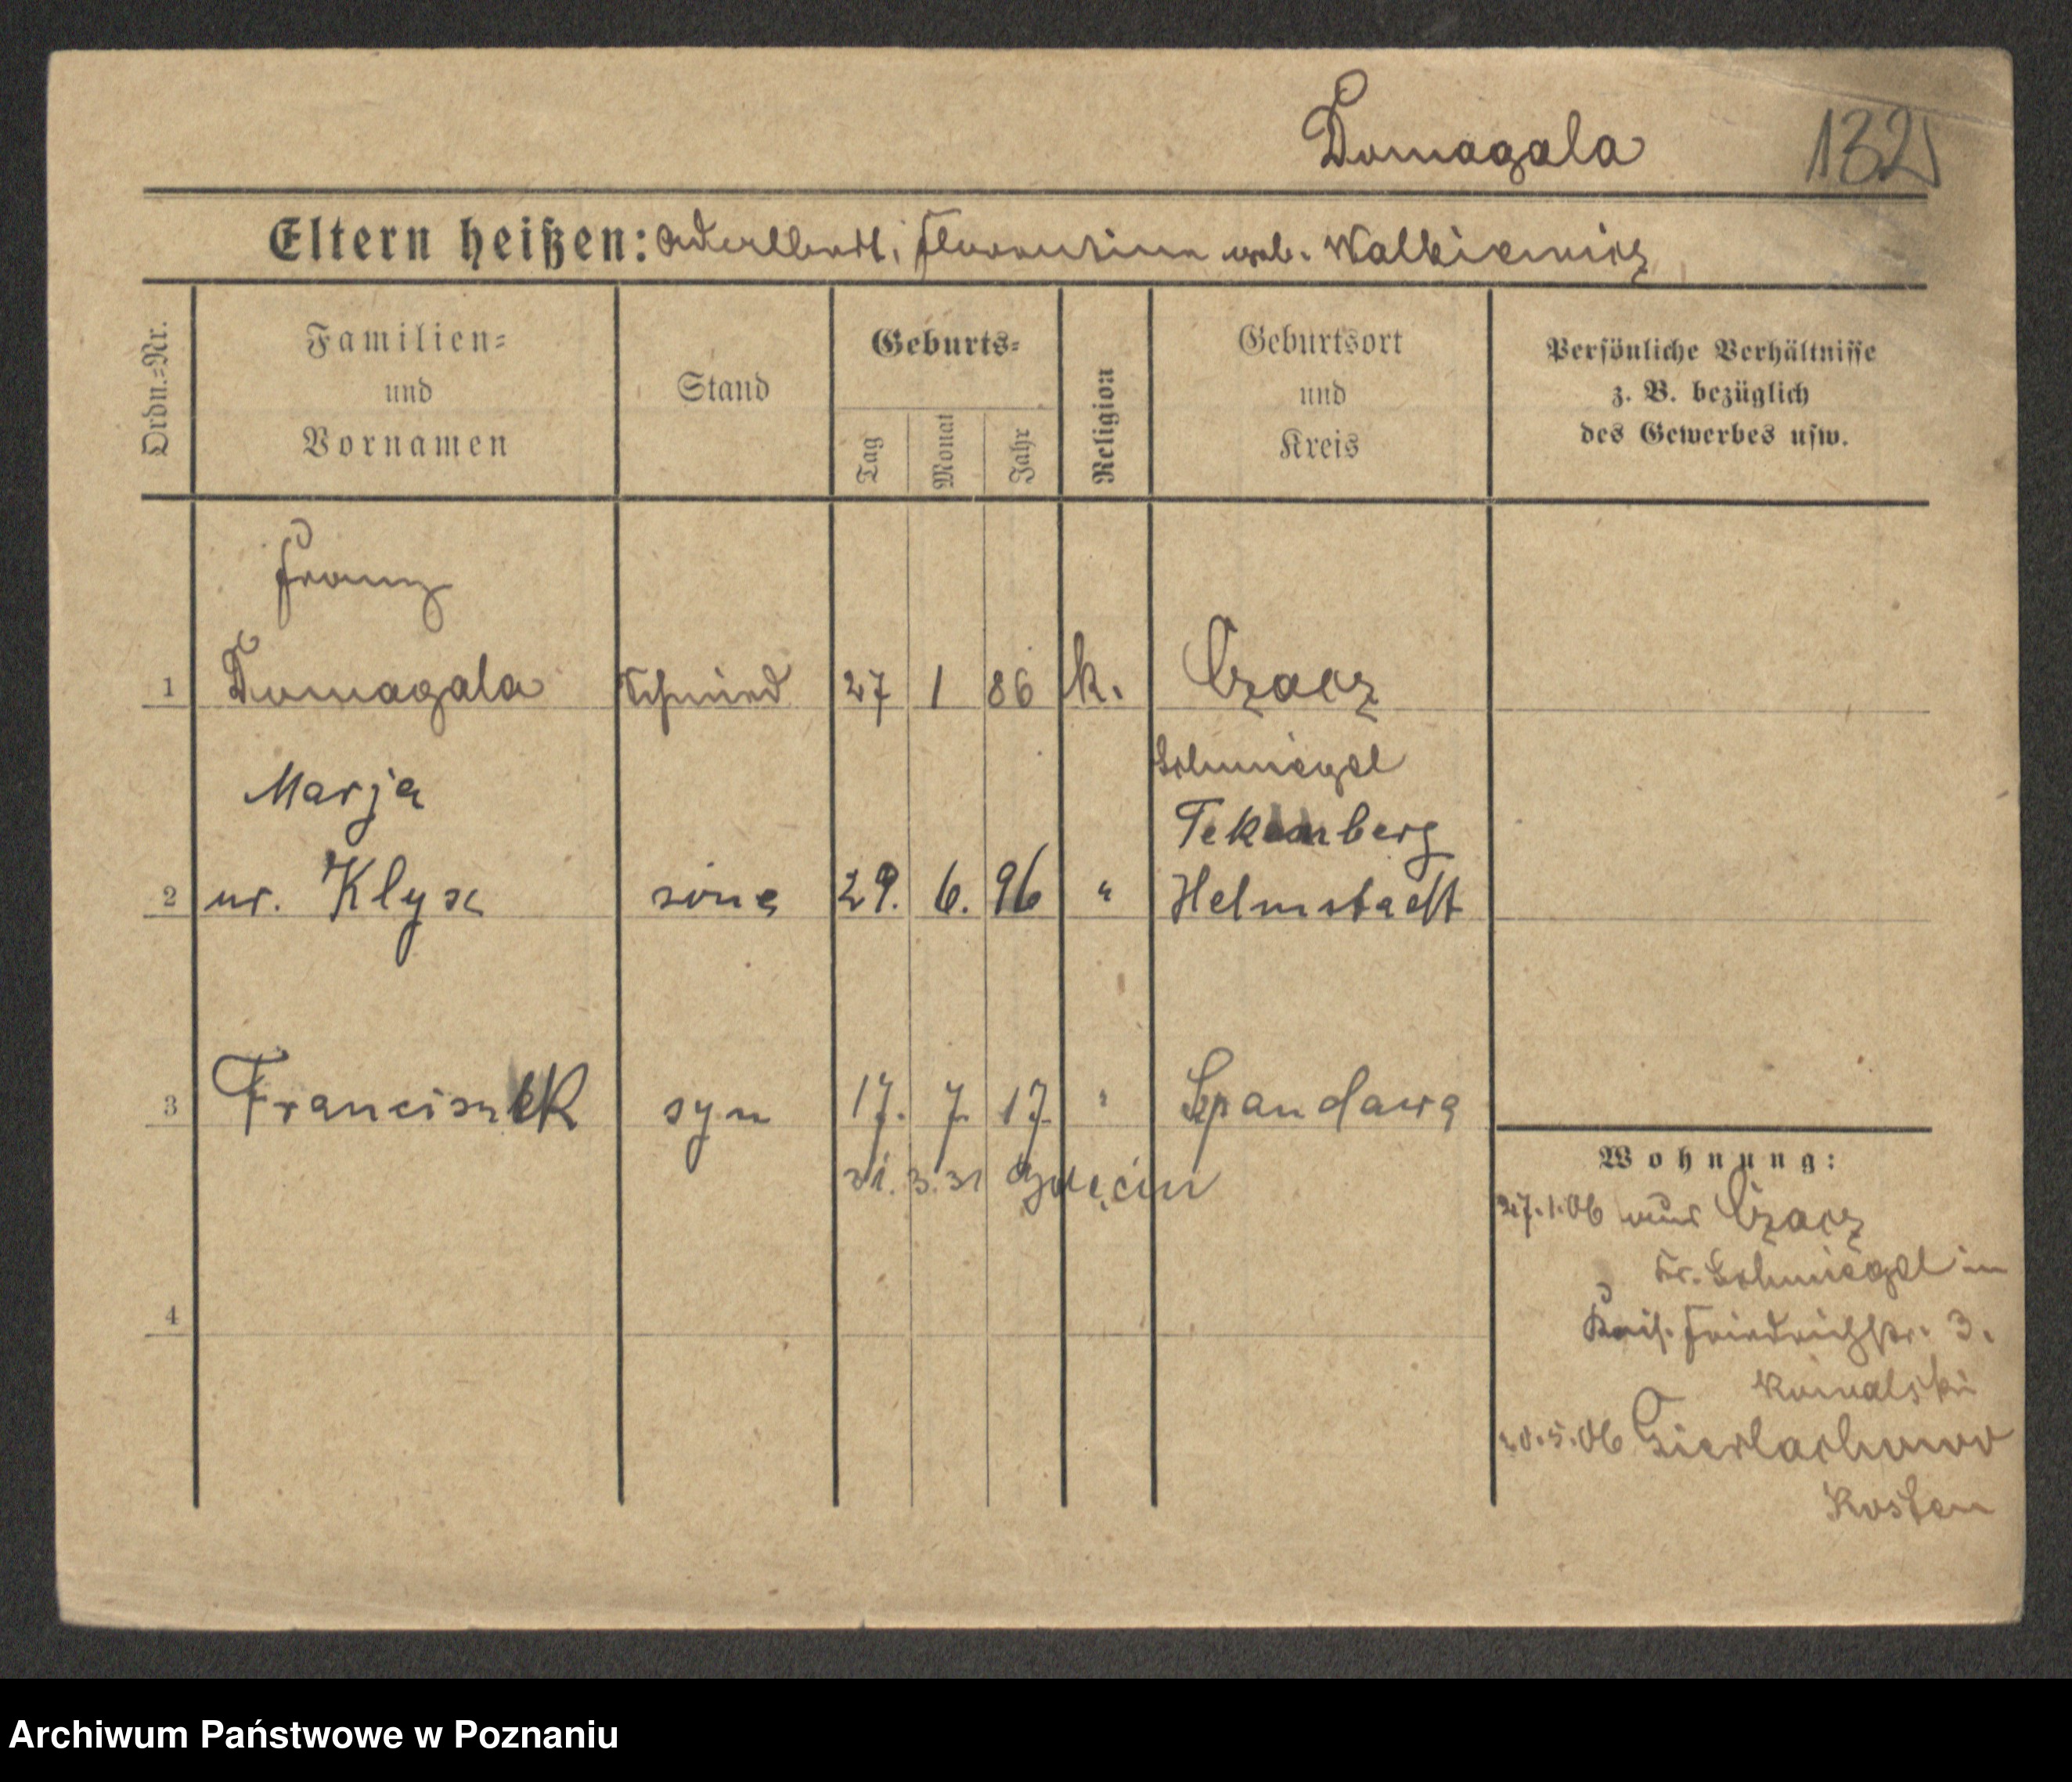 Domagala 132
Eltern heißen: Adalbert, Florentine geb. Walkiewicz
Ordn.=Nr.
Familien=
und
Vornamen
Stand
Geburts=
Tag
Monat
Jahr
Religion
Geburtsort
und
Kreis
Persönliche Verhältnisse
z. B. bezüglich
des Gewerbes usw.
Franz
1 Domagala Schmied 27 1 86 k. Czacz
Schmiegel
Marja
2 ur. Klysz żona 29. 6. 96 " Helmstadt
3 Franciszek syn 17. 7. 17. " Szpandawa
31. 3. 31
4
Wohnung:
27.1.06 aus Czacz
Kr. Schmiegel in
Kais. Friedrichstr. 3.
Kowalski
20.5.06 Sierlachowo
Kosten
Archiwum Państwowe w Poznaniu